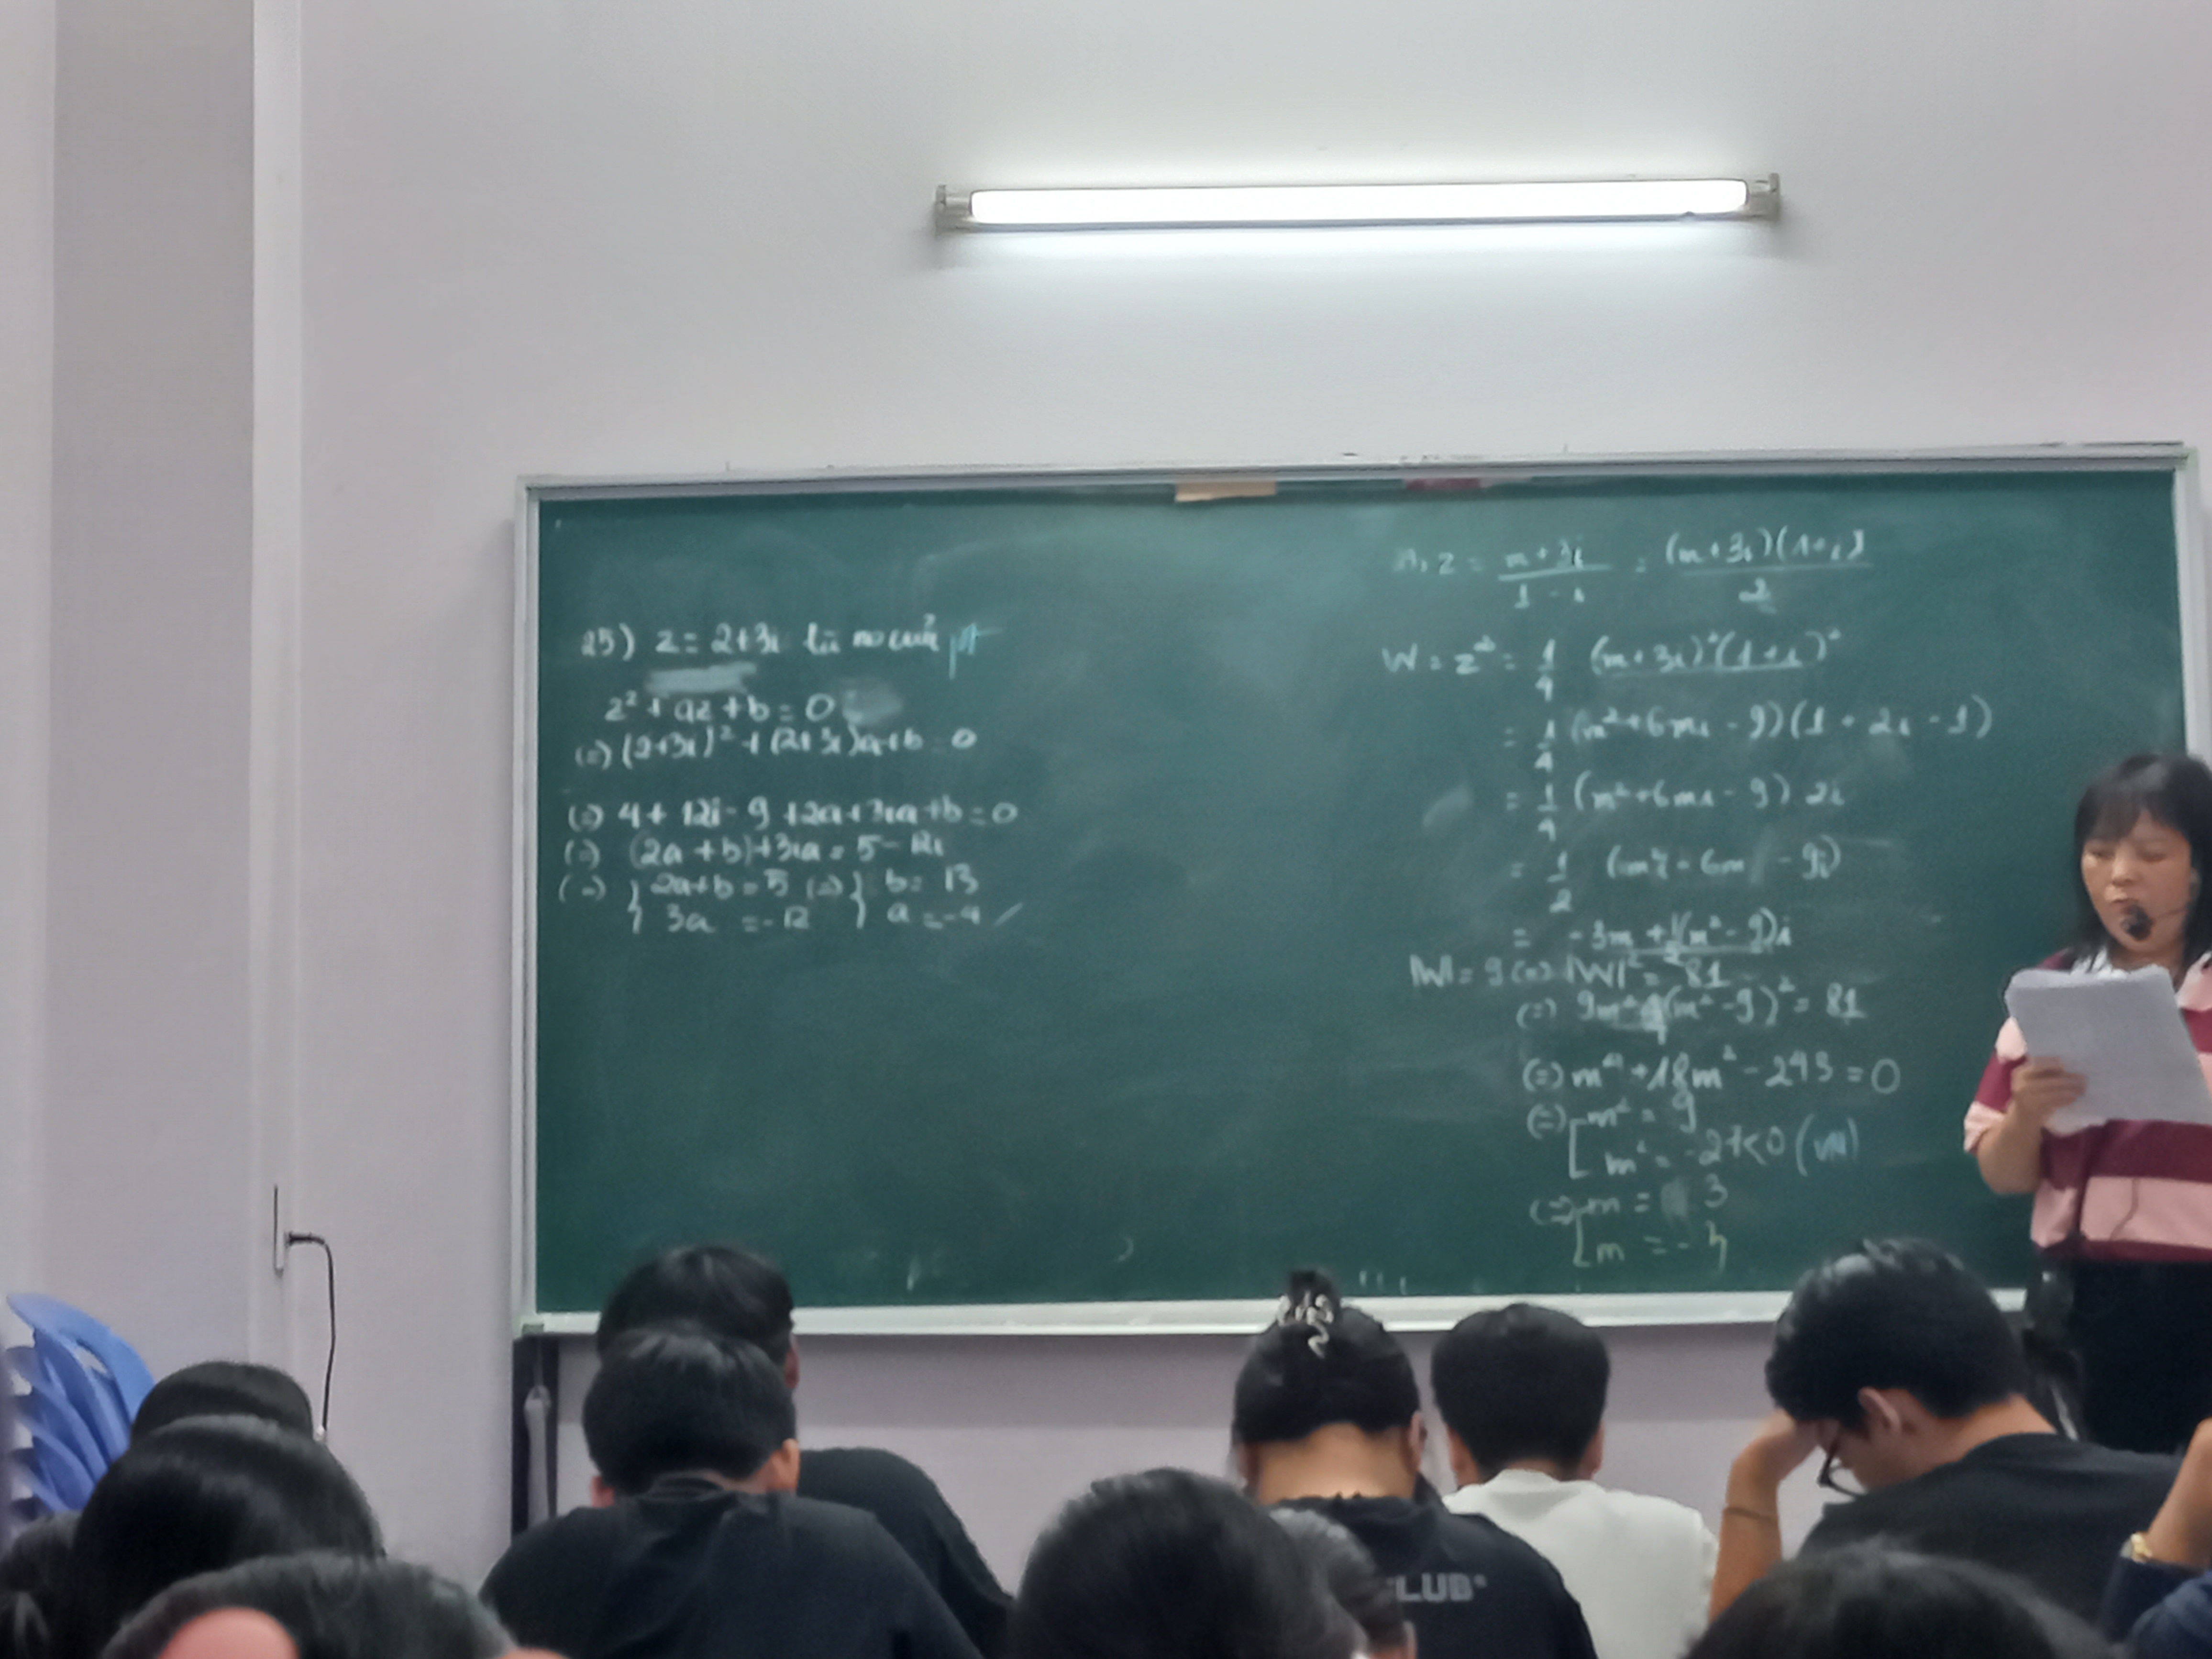 25) z = 2+3i là no của pt
z² + az + b = 0
(=) (2+3i)² + (2+3i)a+b = 0
(=) 4 + 12i - 9 + 2a + 3ia + b = 0
(=) (2a + b) + 3ia = 5 - 12i
(=) { 2a+b = 5 (=) { b = 13
{ 3a = -12 { a = -4
z = (m+3i)/(1-i) = (m+3i)(1+i)/2
W = z² = 1/4 (m+3i)²(1+i)²
= 1/4 (m²+6mi - 9)(1 + 2i - 1)
= 1/4 (m²+6mi - 9) 2i
= 1/2 (m²i - 6m - 9i)
= -3m + 1/2(m² - 9)i
|W| = 9 (=) |W|² = 81
(=) 9m² + 1/4(m² - 9)² = 81
(=) m⁴ + 18m² - 243 = 0
(=) [ m² = 9
[ m² = -27 < 0 (VN)
(=) [ m = 3
[ m = -3
CLUB